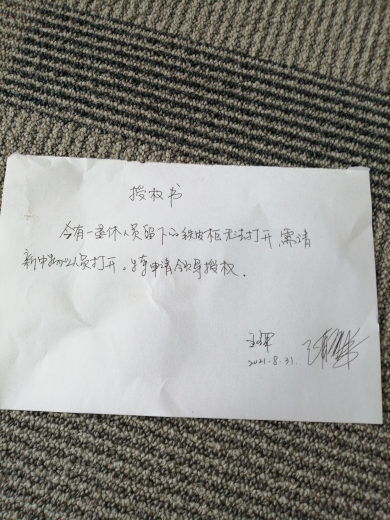 授权书
今有一退休人员留下的铁皮柜无法打开,需请
新中物业人员打开。特申请领导授权.
2021.8.31.